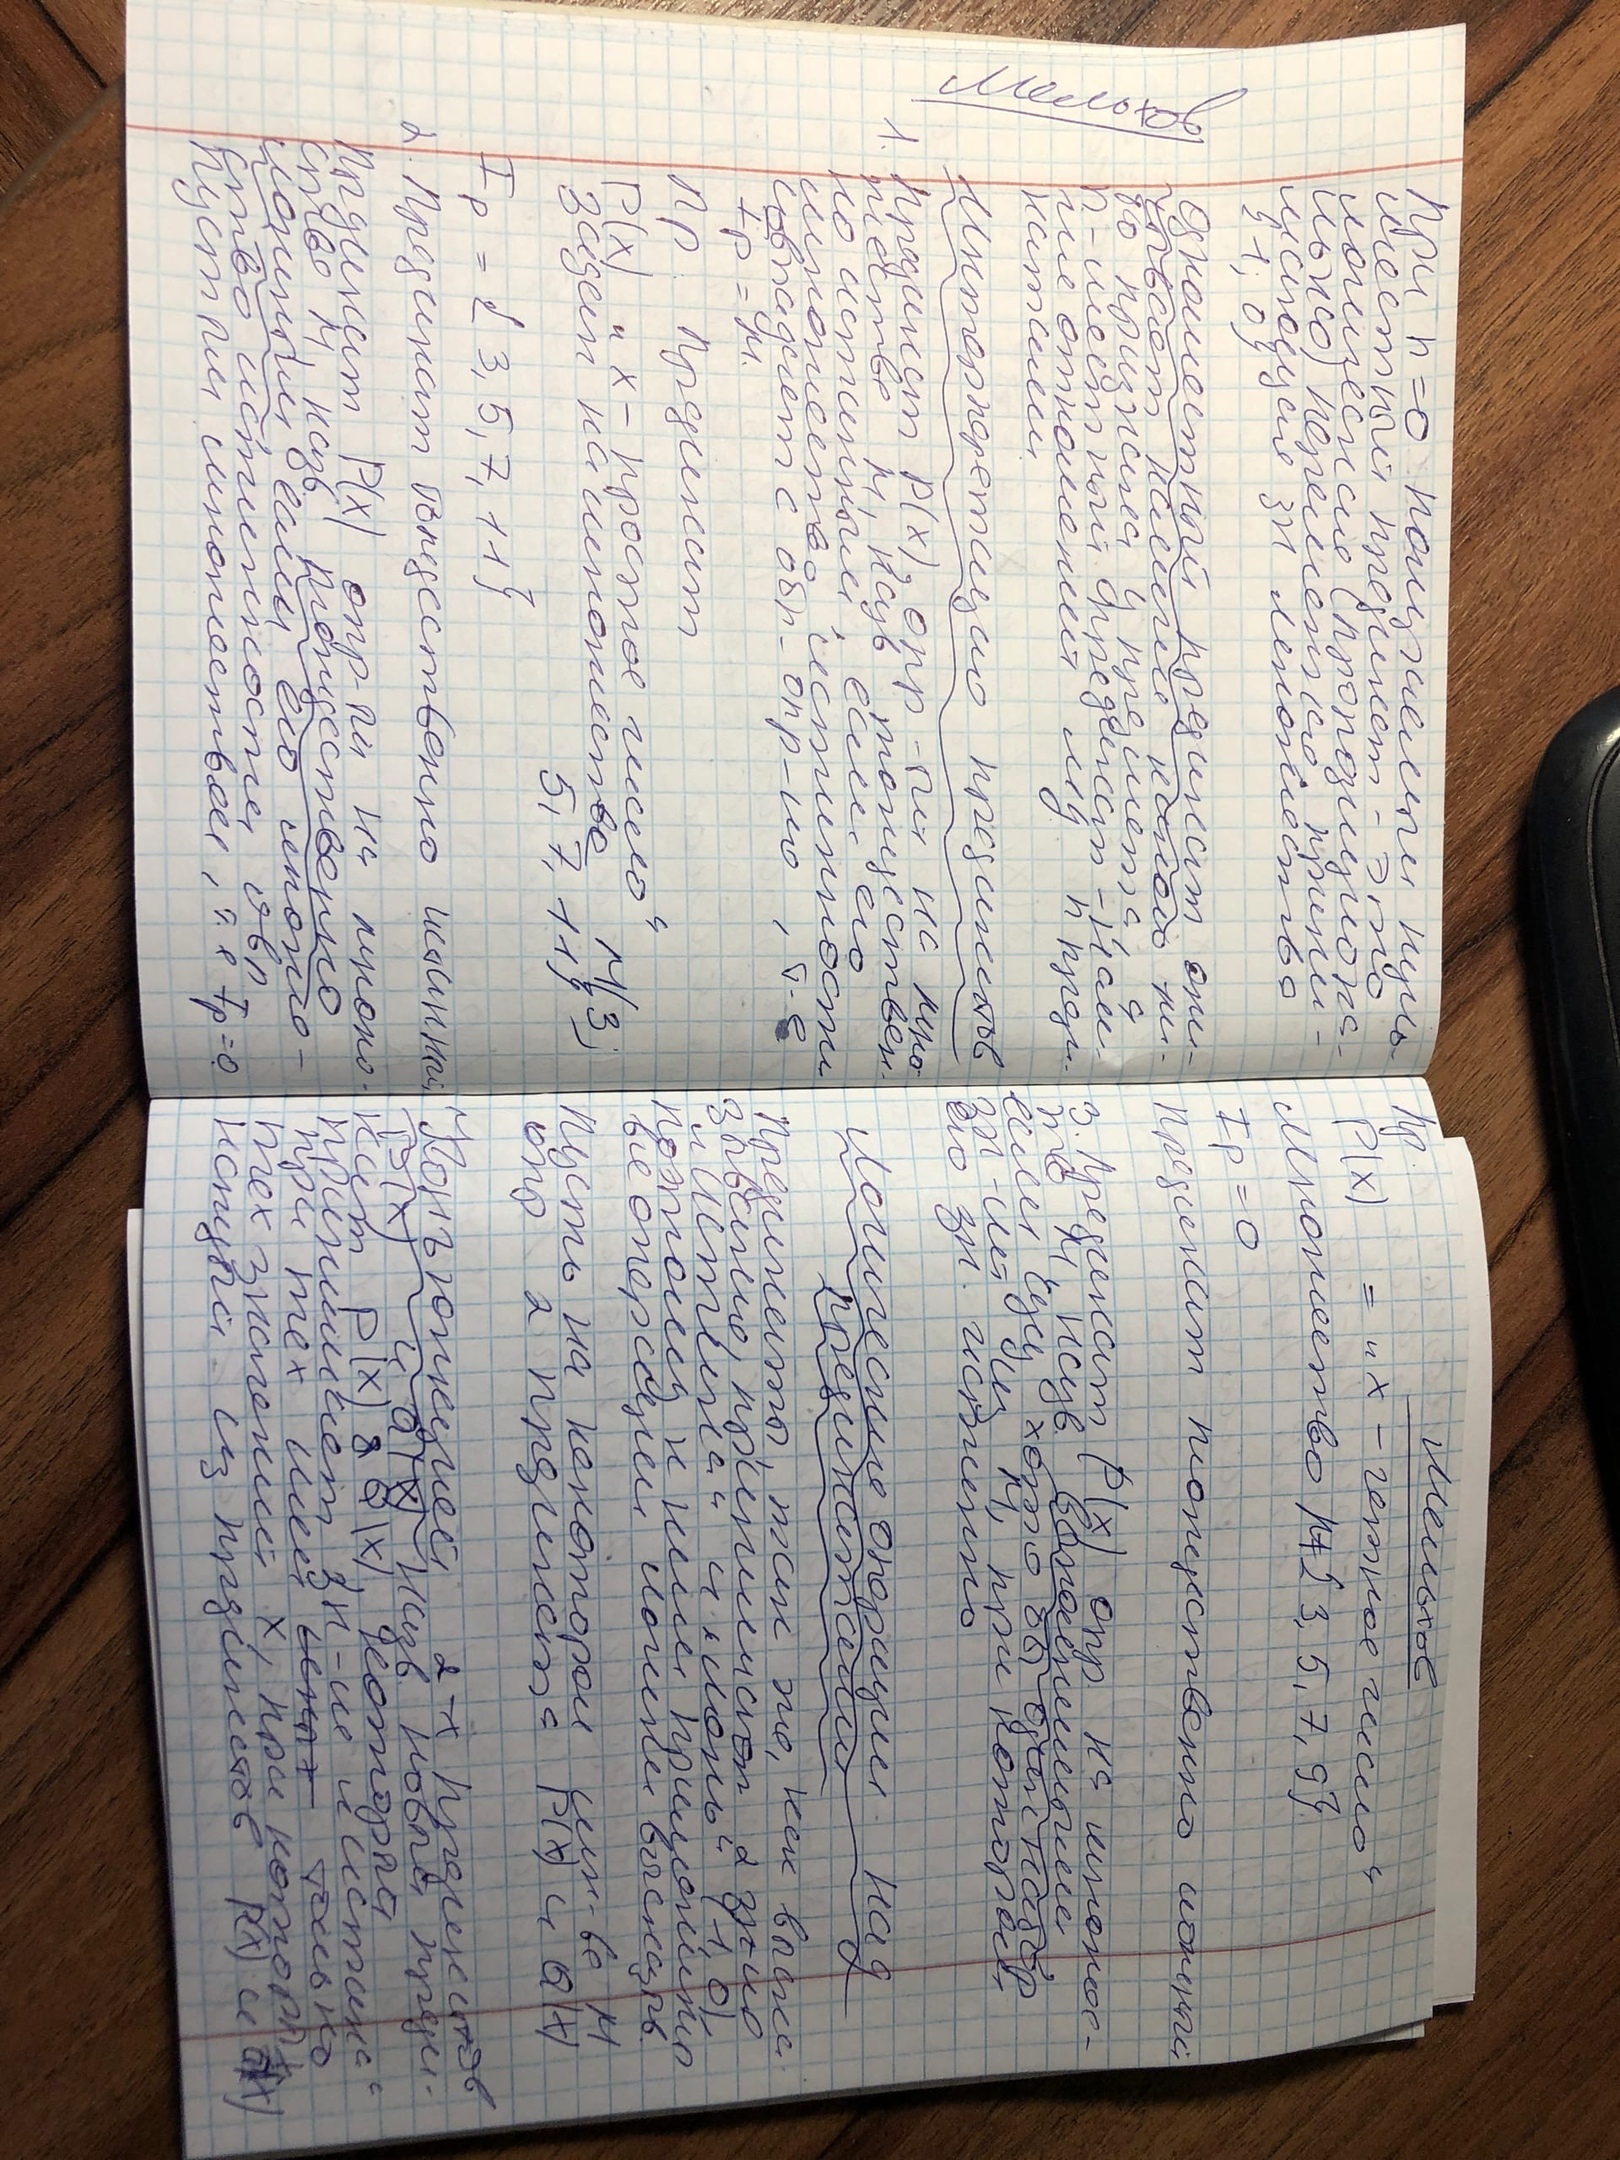 При n=0 получаемый нуль-
местный предикат - это
логическая (пропозициона-
льно) переменная, прини-
мающая зн множества
{1; 0}
Одноместный предикат опи-
сывает наличие какого ли-
бо признака у предмета, а
n-местный предикат - нали-
чие отношений м/у n преди-
катами.
Мельхов
Интерпретацию предикатов
1. Предикат P(x), опр-ый на мно-
жестве M, назв тождествен-
но истинным, если его
множество истинности
совпадает с обл-опр-ию, т.е
Ip = M.
Пр. Предикат
P(x) „x - простое число“
задан на множество M{3;
5, 7, 11}
Ip = {3, 5, 7, 11}
2. Предикат тождественно истинный
Предикат P(x) опр-ый на множе-
стве M, назв тождественно
ложным, если его множе-
ство истинности явл
пустым множеством, т.е Ip=0
Мельхов
Пр.
P(x) = „x - четное число“
Множество M={3, 5, 7, 9}
Ip = 0
Предикат тождественно ложный
3. Предикат P(x) опр. на множес-
тве M, назв. выполнимым,
если сущ хотя бы один набор
зн-ий из M, при котором
его зн. истинно
Логические операции над
предикатами
Предикаты, так же, как выска
зывания, принимают 2 зн-ия
„истина“ и „ложь“ (1, 0),
поэтому к ним применимы
все операции логики высказыв.
Пусть на некотором мн-ве M
опр 2 предиката P(x) и Q(x)
Конъюнкцией 2-х предикатов
P(x) и Q(x) назв. новый преди-
кат P(x) & Q(x), который
принимает зн-ие „истина“
при тех или иных только
тех значений x, при которых
каждый из предикатов P(x) и Q(x)